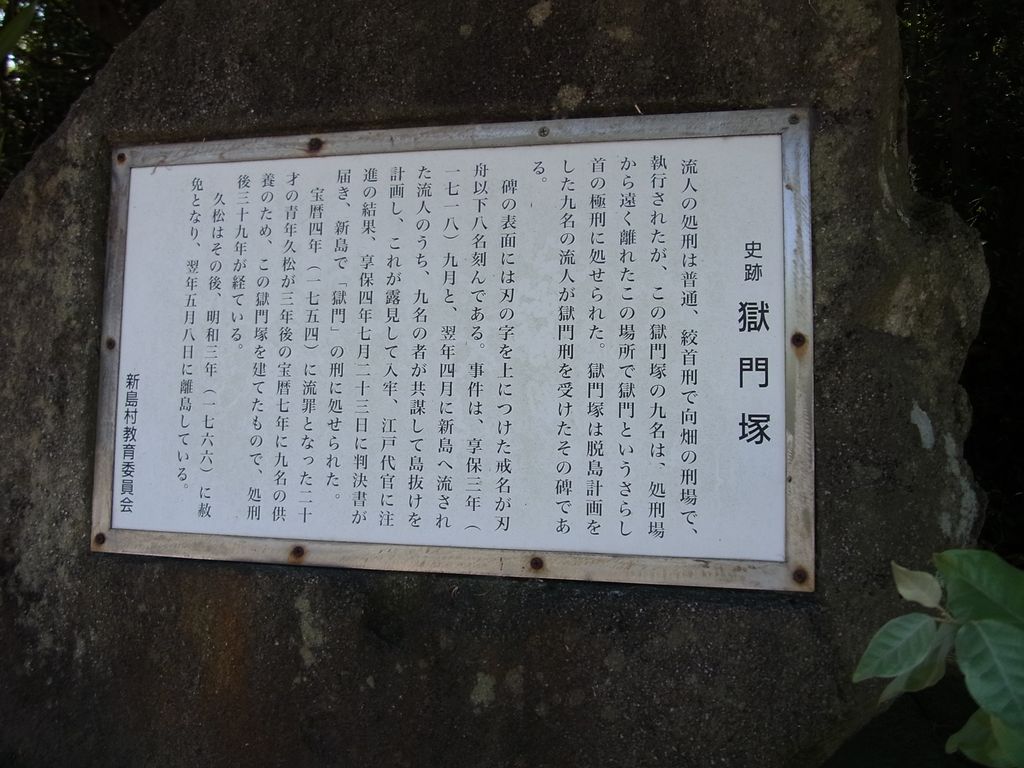 史跡 獄門塚
流人の処刑は普通、絞首刑で向畑の刑場で、
執行されたが、この獄門塚の九名は、処刑場
から遠く離れたこの場所で獄門というさらし
首の極刑に処せられた。獄門塚は脱島計画を
した九名の流人が獄門刑を受けたその碑であ
る。
碑の表面には刃の字を上につけた戒名が刃
舟以下八名刻んである。事件は、享保三年（
一七一八）九月と、翌年四月に新島へ流され
た流人のうち、九名の者が共謀して島抜けを
計画し、これが露見して入牢、江戸代官に注
進の結果、享保四年七月二十三日に判決書が
届き、新島で「獄門」の刑に処せられた。
宝暦四年（一七五四）に流罪となった二十
才の青年久松が三年後の宝暦七年に九名の供
養のため、この獄門塚を建てたもので、処刑
後三十九年が経ている。
久松はその後、明和三年（一七六六）に赦
免となり、翌年五月八日に離島している。
新島村教育委員会